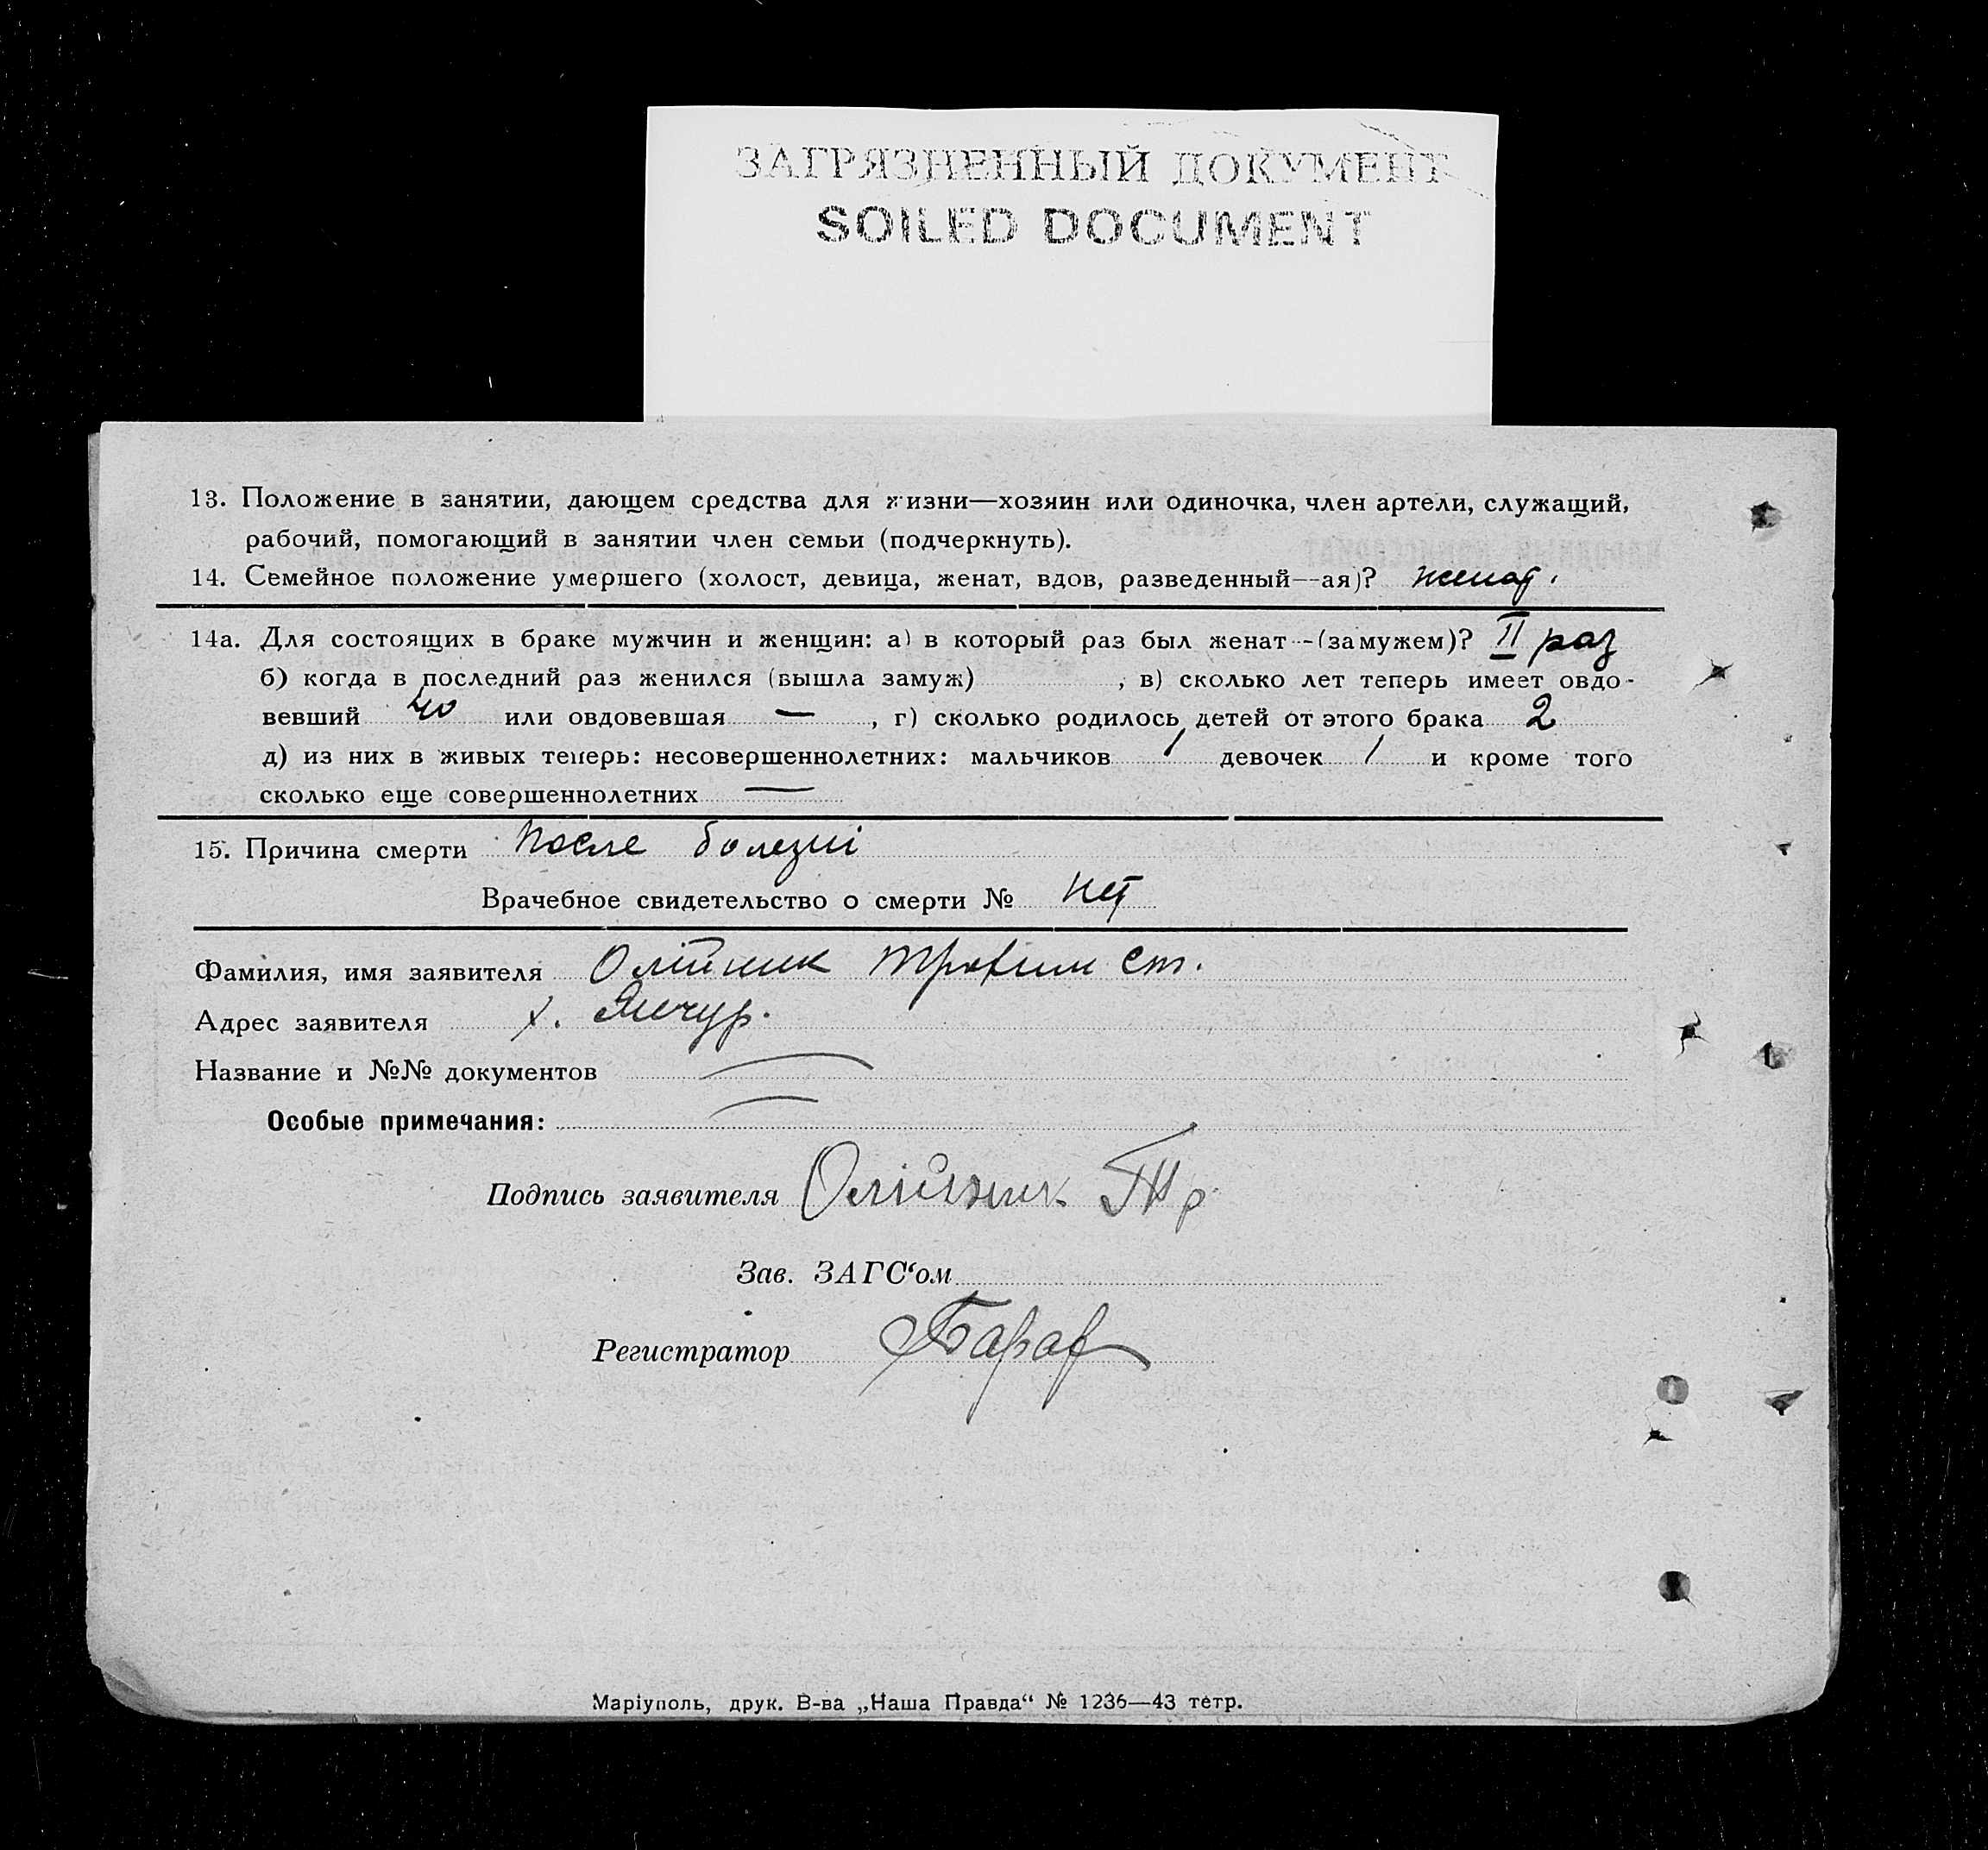 ЗАГРЯЗНЕННЫЙ ДОКУМЕНТ
SOILED DOCUMENT
13. Положение в занятии, дающем средства для жизни—хозяин или одиночка, член артели, служащий,
рабочий, помогающий в занятии член семьи (подчеркнуть).
14. Семейное положение умершего (холост, девица, женат, вдов, разведенный—ая)? женат.
14а. Для состоящих в браке мужчин и женщин: а) в который раз был женат—(замужем)? II раз
б) когда в последний раз женился (вышла замуж) , в) сколько лет теперь имеет овдо-
вевший 40 или овдовевшая — , г) сколько родилось детей от этого брака 2
д) из них в живых теперь: несовершеннолетних: мальчиков 1 девочек 1 и кроме того
сколько еще совершеннолетних —
15. Причина смерти После болезні
Врачебное свидетельство о смерти № нет
Фамилия, имя заявителя Олійник Трофим Ст.
Адрес заявителя х.
Название и №№ документов —
Особые примечания: —
Подпись заявителя Олійник Тр
Зав. ЗАГС‘ом
Регистратор
Маріуполь, друк. В-ва „Наша Правда“ № 1236—43 тетр.